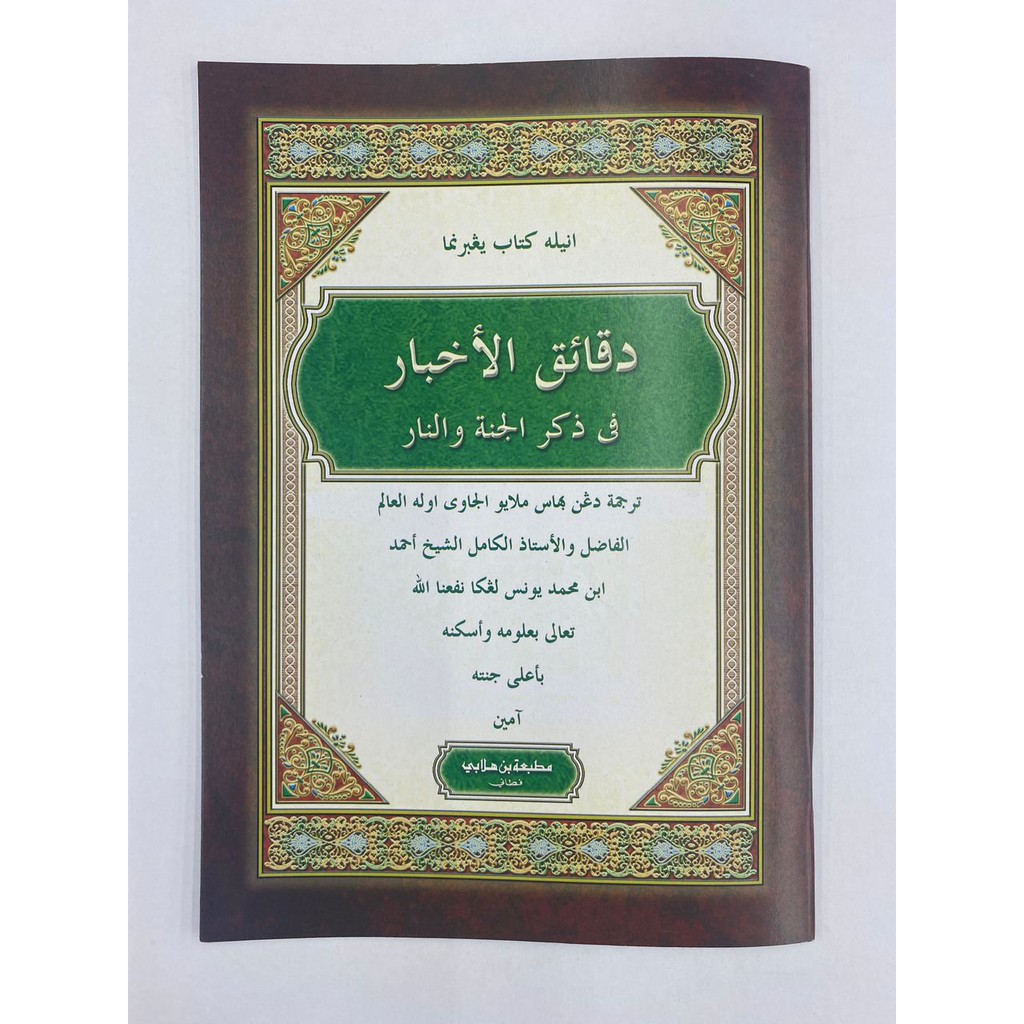 انيله كتاب يڠبرنما
دقائق الأخبار
فى ذكر الجنة والنار
ترجمة دڠن بهاس ملايو الجاوى اوله العالم
الفاضل والأستاذ الكامل الشيخ أحمد
ابن محمد يونس لڠكا نفعنا الله
تعالى بعلومه وأسكنه
بأعلى جنته
آمين
مطبعة بن هلابي
فطاني